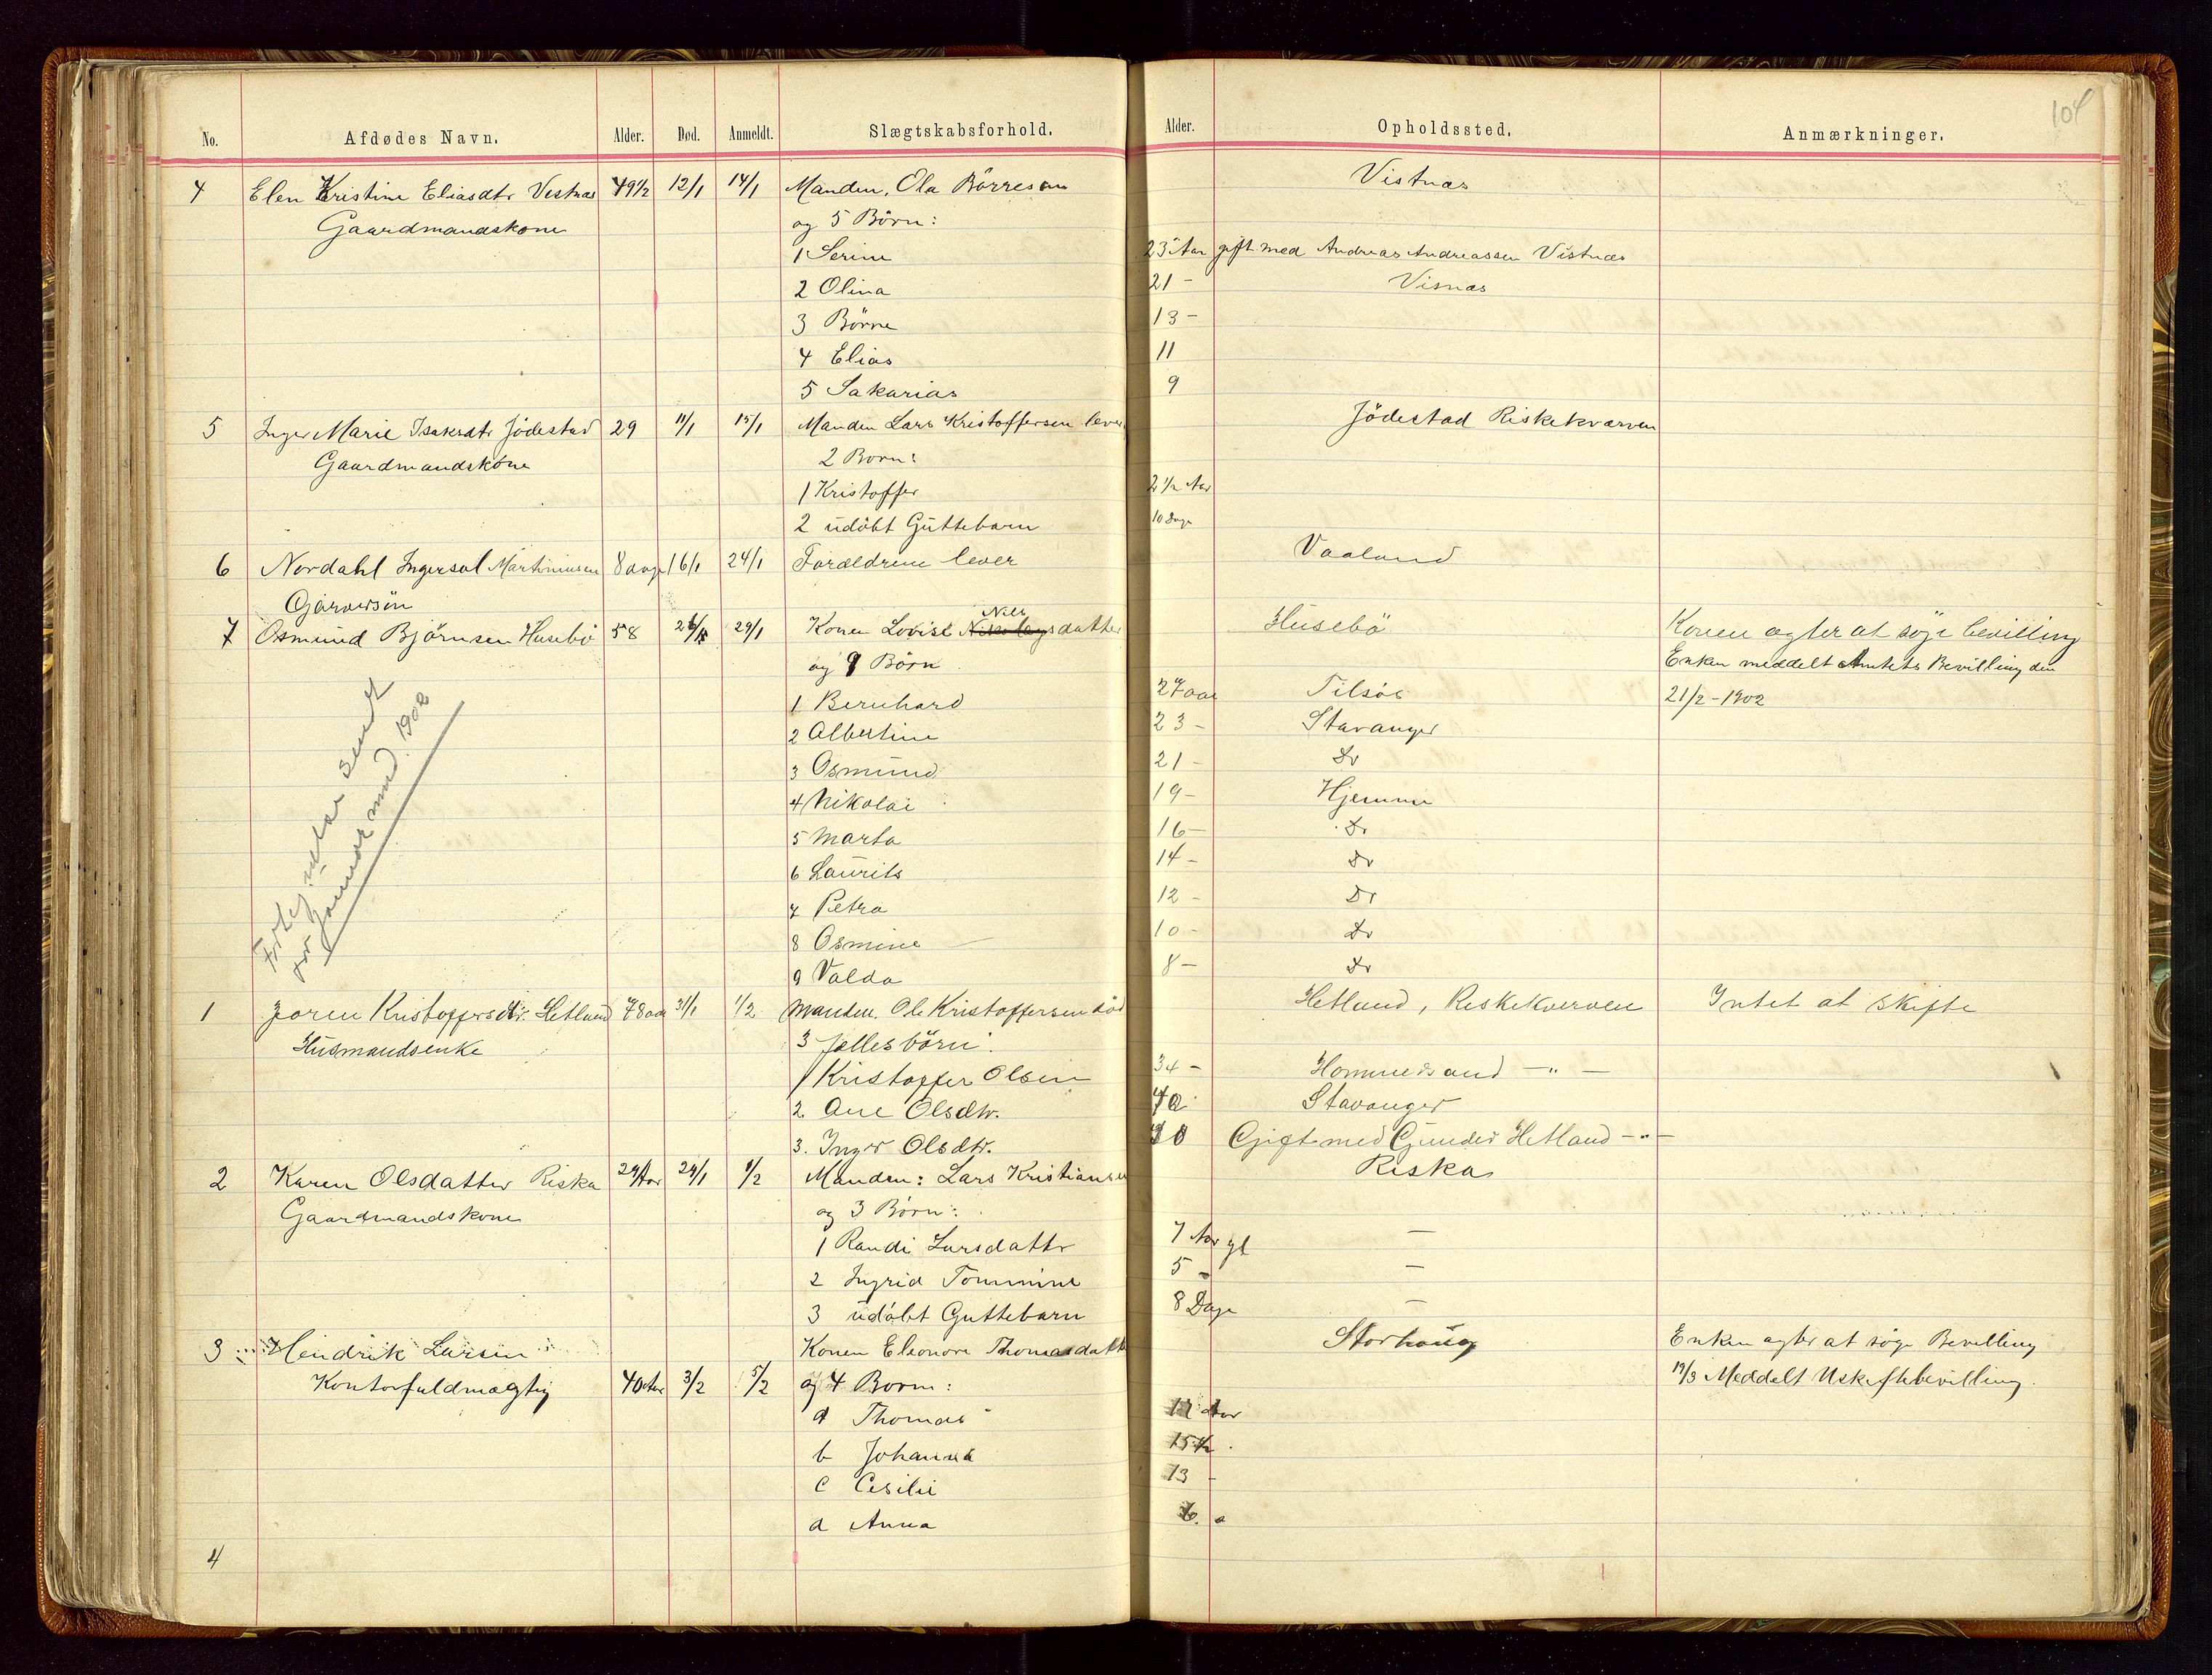 104
No. Afdødes Navn. Alder. Død. Anmeldt. Slægtskabsforhold. Alder. Opholdssted. Anmærkninger.
4 Elen Kristine Eliasdtr Vestnæs 49½ 12/1 14/1 Manden, Ola Börresen Vistnæs
Gaardmandskone og 5 Børn:
1 Serine 23 Aar gift med Andreas Andreassen Vistnæs
2 Olina 21 - Visnæs
3 Börre 13 -
4 Elias 11
5 Sakarias 9
5 Inger Marie Isaksdtr Jödestad 29 11/1 15/1 Manden Lars Kristoffersen lever Jödestad Riskekværven
Gaardmandskone 2 Born:
1 Kristoffer 2½ Aar
2 udöbt Guttebarn 10 Dage
6 Nordahl Ingersol Martiniusen 8 dage 16/1 24/1 Forældrene lever Vaaland
Garversön
7 Osmund Björnsen Husebö 58 29/1 Konen Lovise Nikolaysdatter Husebö Konen agter at söge bevilling
Nils
og 9 Börn Enken meddelt Amtets Bevilling den
1 Bernhard 27 aar Tilsöe 21/2 - 1902
2 Albertine 23 - Stavanger
3 Osmund 21 - Do
4 Nikolai 19 - Hjemme
5 Marta 16 - Do
6 Laurits 14 - Do
7 Petra 12 - Do
8 Osmine 10 - Do
9 Valda 8 - Do
sendt
1902
1 Joren Kristoffersdtr. Hetland 78 aar 31/1 1/2 Manden Ole Kristoffersen död Hetland, Riskekverven Intet at skifte
Husmandsenke 3 fællesbörn:
1 Kristoffer Olsen 34 - Hommersand - " -
2. Ane Olsdtr. Stavanger
3. Inger Olsdtr. Gift med Gunder Hetland - " -
2 Karen Olsdatter Riska 29 Aar 24/1 1/2 Manden: Lars Kristiansen Riska
Gaardmandskone og 3 Börn:
1 Randi Larsdattr 7 Aar gl -
2 Ingrid Tommine 5 - -
3 udöbt Guttebarn 8 Dage -
3 Hendrik Larsen Konen Eleonore Thomasdattr Storhaug Enken agter at söge Bevilling
Kontorfuldmægtig 40 Aar 3/2 5/2 og 4 Born: 19/3 Meddelt Uskiftebevilling.
a Thomas Aar
b Johanna 15½
c Cesilie 13 -
d Anna 6.
4